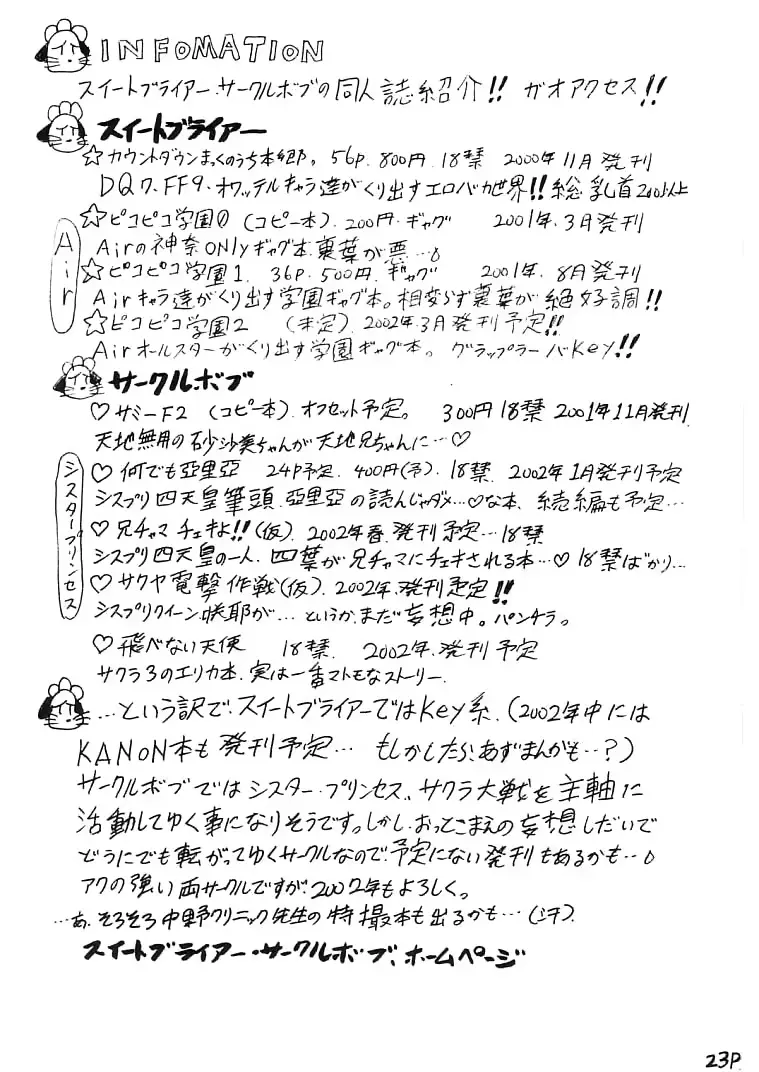 INFOMATION
スイートブライアー・サークルボブの同人誌紹介!! ガオアクセス!!
スイートブライアー
☆カウントダウンまっくのうち本郷。56P. 800円. 18禁 2000年11月発刊
DQ7.FF9.オワッテルキャラ達がくり出すエロバカ世界!!総乳首200以上
Air
☆ピコピコ学園0 (コピー本).200円.ギャグ 2001年.3月発刊
Airの神奈ONlyギャグ本.裏葉が悪…。
☆ピコピコ学園1. 36P.500円.ギャグ 2001年.8月発刊
Airキャラ達がくり出す学園ギャグ本。相変らず裏葉が絶好調!!
☆ピコピコ学園2 (未定).2002年.3月発刊予定!!
Airオールスターがくり出す学園ギャグ本。グラップラーバKey!!
サークルボブ
♡サミーF2 (コピー本).オフセット予定。 300円 18禁 2001年11月発刊
天地無用の砂沙美ちゃんが天地兄ちゃんに…♡
シスタープリンセス
♡何でも亞里亞 24P予定.400円(予).18禁. 2002年1月発刊予定
シスプリ四天皇筆頭.亞里亞の読んじゃダメ…♡な本、続編も予定…
♡兄チャマ チェキよ!!(仮).2002年春.発刊予定…18禁
シスプリ四天皇の一人.四葉が兄チャマにチェキされる本…♡ 18禁ばかり…
♡サクヤ電撃作戦(仮).2002年.発刊予定!!
シスプリクイーン咲耶が…というか.まだ妄想中。パンチラ。
♡飛べない天使 18禁 2002年.発刊予定
サクラ3のエリカ本.実は一番マトモなストーリー.
…という訳で.スイートブライアーではKey系.(2002年中には
KANON本も発刊予定… もしかしたら、あずまんがも…?)
サークルボブではシスター・プリンセス、サクラ大戦を主軸に
活動してゆく事になりそうです。しかし.おっとこまえの妄想しだいで
どうにでも転がってゆくサークルなので.予定にない発刊もあるかも…。
アクの強い両サークルですが.2002年もよろしく。
…あ.そろそろ中野クリニック先生の特撮本も出るかも…(汗).
スイートブライアー・サークルボブ、ホームページ
23P